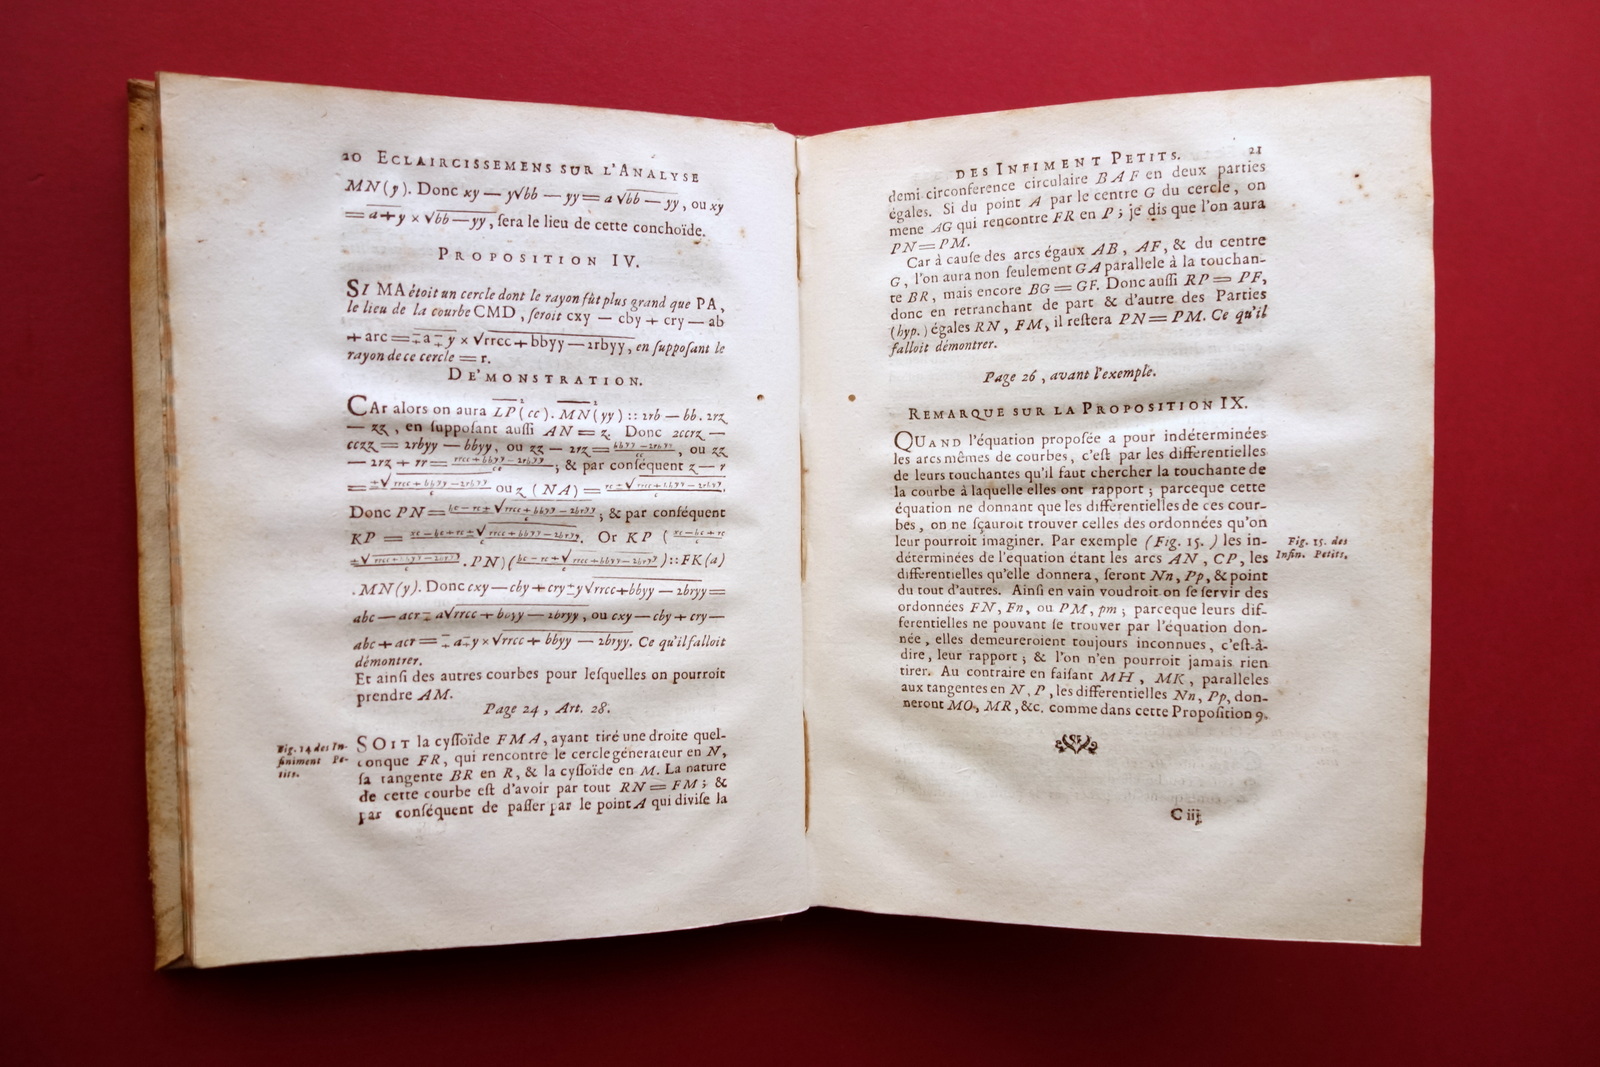 20 ECLAIRCISSEMENS SUR L'ANALYSE
MN(y). Donc xy — y√bb — yy = a √bb — yy, ou xy
= a + y × √bb — yy, ſera le lieu de cette conchoïde.
PROPOSITION IV.
SI MA étoit un cercle dont le rayon fût plus grand que PA,
le lieu de la courbe CMD, ſeroit cxy — cby + cry — ab
+ arc = ∓a ∓ y × √rrcc + bbyy — 2rbyy, en ſuppoſant le
rayon de ce cercle = r.
DE'MONSTRATION.
CAr alors on aura LP² (cc). MN² (yy) :: 2rb — bb. 2rz
— zz, en ſuppoſant auſſi AN = z. Donc 2ccrz —
cczz = 2rbyy — bbyy, ou zz — 2rz = bbyy — 2rbyy / cc, ou zz
— 2rz + rr = rrcc + bbyy — 2rbyy / cc; & par conſéquent z — r
= ±√rrcc + bbyy — 2rbyy / c ou z (NA) = rc ± √rrcc + bbyy — 2rbyy / c.
Donc PN = bc — rc ± √rrcc + bbyy — 2bryy / c; & par conſéquent
KP = xc — bc + rc ± √rrcc + bbyy — 2bryy / c. Or KP ( xc — bc + rc
± √rrcc + bbyy — 2bryy / c . PN) ( bc — rc ± √rrcc + bbyy — 2bryy / c ) :: FK (a)
. MN (y). Donc cxy — cby + cry ± y√rrcc + bbyy — 2bryy =
abc — acr ∓ a√rrcc + bbyy — 2bryy, ou cxy — cby + cry —
abc + acr = ∓ a ∓ y × √rrcc + bbyy — 2bryy. Ce qu'il falloit
démontrer.
Et ainſi des autres courbes pour leſquelles on pourroit
prendre AM.
Page 24, Art. 28.
Fig. 14 des In-
finiment Pe-
tits.
SOIT la cyſſoïde FMA, ayant tiré une droite quel-
conque FR, qui rencontre le cercle générateur en N,
ſa tangente BR en R, & la cyſſoïde en M. La nature
de cette courbe eſt d'avoir par tout RN = FM; &
par conſéquent de paſſer par le point A qui diviſe la
DES INFIMENT PETITS. 21
demi circonférence circulaire BAF en deux parties
égales. Si du point A par le centre G du cercle, on
mene AG qui rencontre FR en P; je dis que l'on aura
PN = PM.
Car à cauſe des arcs égaux AB, AF, & du centre
G, l'on aura non ſeulement GA parallele à la touchan-
te BR, mais encore BG = GF. Donc auſſi RP = PF,
donc en retranchant de part & d'autre des Parties
(hyp.) égales RN, FM, il reſtera PN = PM. Ce qu'il
falloit démontrer.
Page 26, avant l'exemple.
REMARQUE SUR LA PROPOSITION IX.
QUAND l'équation propoſée a pour indéterminées
les arcs mêmes de courbes, c'eſt par les differentielles
de leurs touchantes qu'il faut chercher la touchante de
la courbe à laquelle elles ont rapport; parceque cette
équation ne donnant que les differentielles de ces cour-
bes, on ne ſçauroit trouver celles des ordonnées qu'on
leur pourroit imaginer. Par exemple (Fig. 15.) les in-
déterminées de l'équation étant les arcs AN, CP, les
differentielles qu'elle donnera, ſeront Nn, Pp, & point
du tout d'autres. Ainſi en vain voudroit on ſe ſervir des
ordonnées FN, Fn, ou PM, pm; parceque leurs dif-
ferentielles ne pouvant ſe trouver par l'équation don-
née, elles demeureroient toujours inconnues, c'eſt-à-
dire, leur rapport; & l'on n'en pourroit jamais rien
tirer. Au contraire en faiſant MH, MK, paralleles
aux tangentes en N, P, les differentielles Nn, Pp, don-
neront MO, MR, &c. comme dans cette Propoſition 9.
Fig. 15. des
Infin. Petits.
C iij